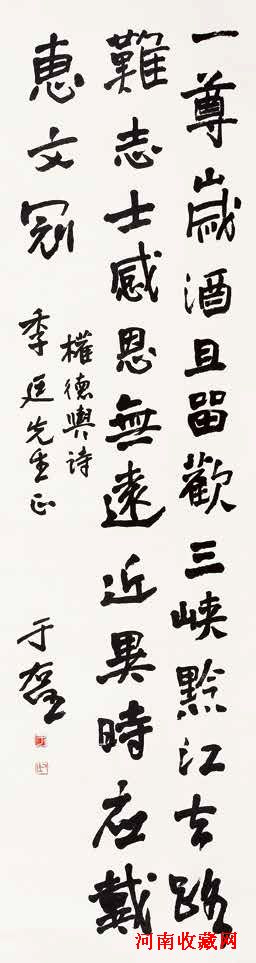 一尊歲酒且留歡三峽黔江去路
難志士感恩無遠近異時應戴
惠文冠
權德輿詩
季廷先生正
于右任
河南收藏网